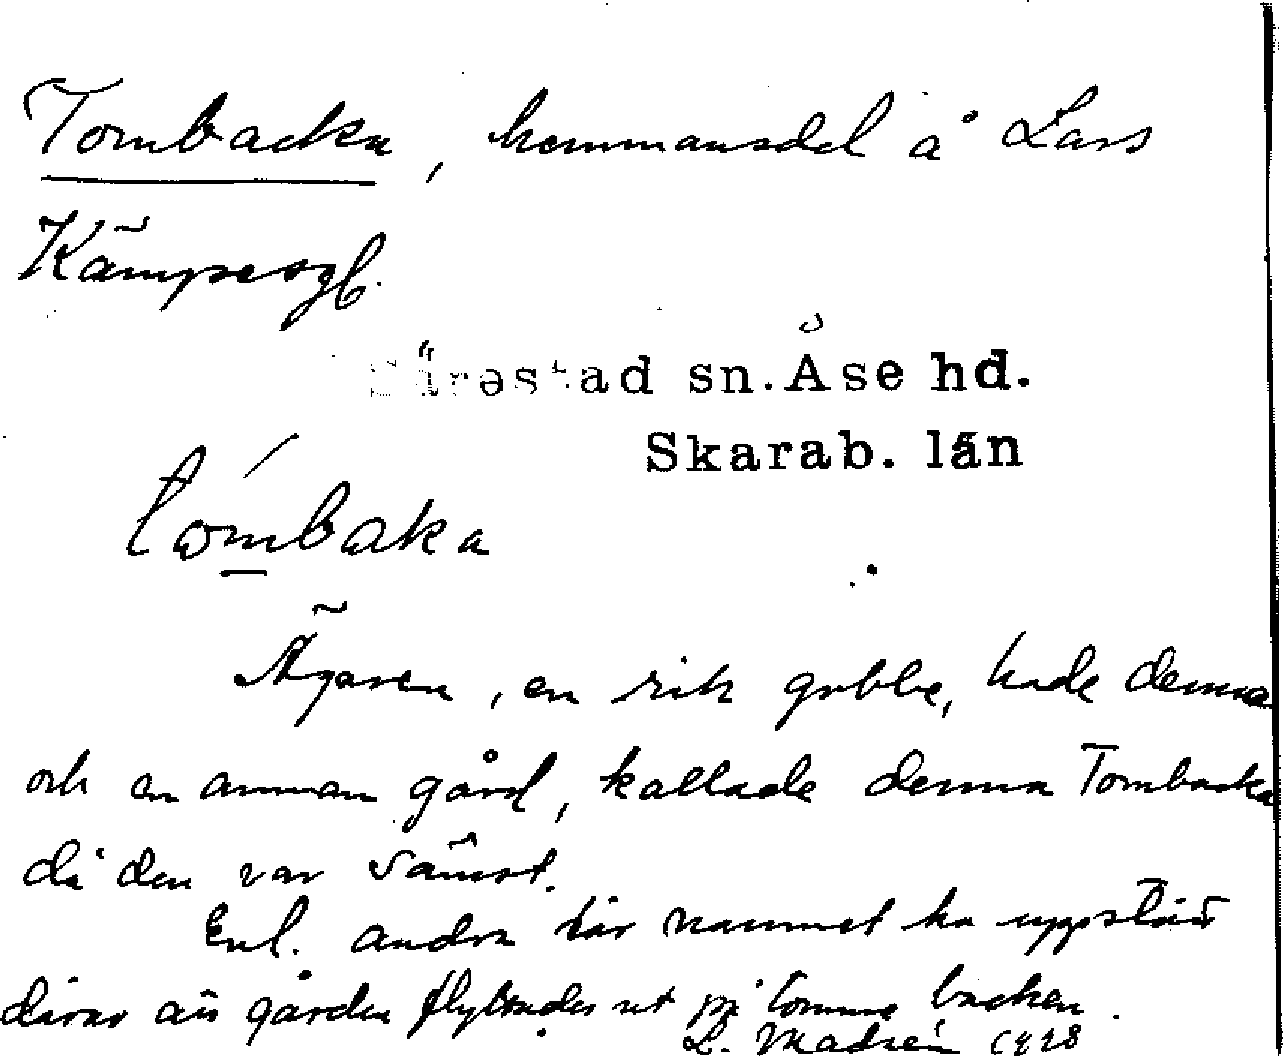 Tombacka, hemmansdel å Lars
Kämpesgd.
Särestad sn. Åse hd.
Skarab. län
tómbaka
Ägaren, en rik gubbe, hade denna
och en annan gård, kallade denna Tombacka
då den var sämst.
Enl. andra lär namnet ha uppstått
därav att gården flyttades ut på tomma backen.
L. 1928